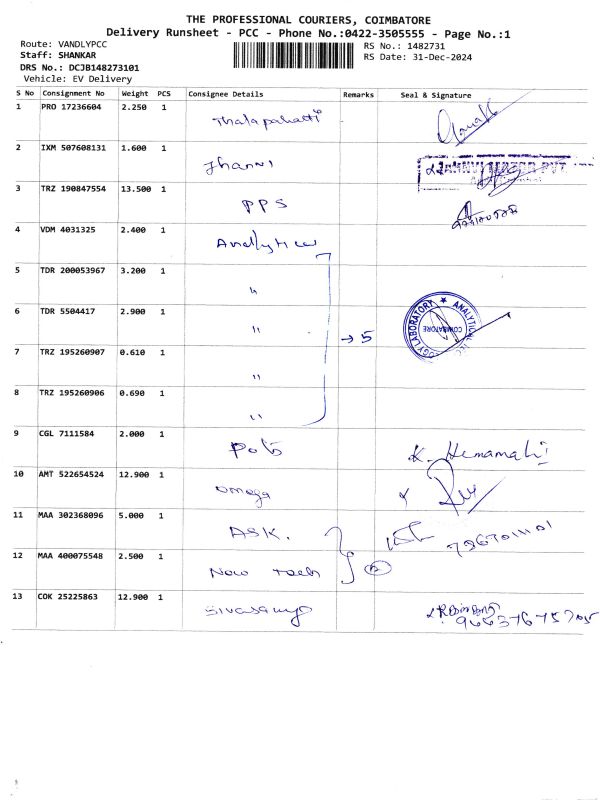 THE PROFESSIONAL COURIERS, COIMBATORE
Delivery Runsheet - PCC - Phone No.:0422-3505555 - Page No.:1
Route: VANDLYPCC RS No.: 1482731
Staff: SHANKAR RS Date: 31-Dec-2024
DRS No.: DCJB148273101
Vehicle: EV Delivery
S No Consignment No Weight PCS Consignee Details Remarks Seal & Signature
1 PRO 17236604 2.250 1
2 IXM 507608131 1.600 1
3 TRZ 190847554 13.500 1 PPS
4 VDM 4031325 2.400 1
5 TDR 200053967 3.200 1 "
6 TDR 5504417 2.900 1 " → 5
7 TRZ 195260907 0.610 1 "
8 TRZ 195260906 0.690 1 "
9 CGL 7111584 2.000 1
10 AMT 522654524 12.900 1 omega
11 MAA 302368096 5.000 1 ASK.
12 MAA 400075548 2.500 1 New Tech
13 COK 25225863 12.900 1
LABORATORY ★ ANALYTICAL
COIMBATORE